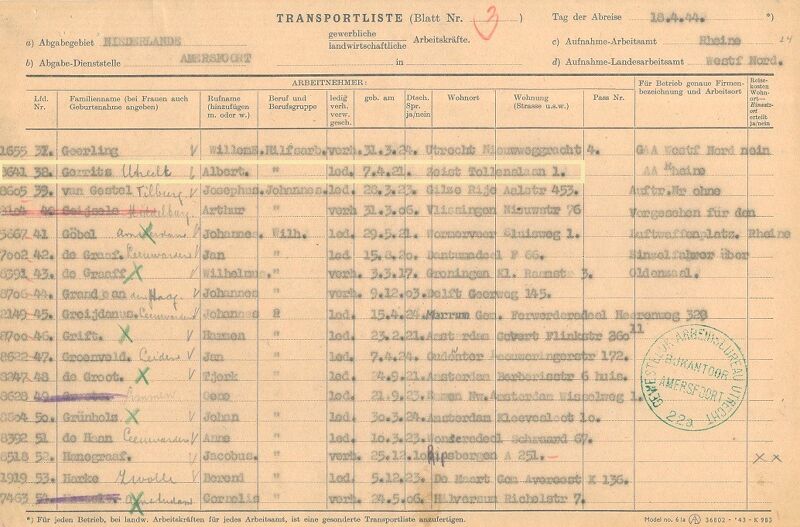 TRANSPORTLISTE (Blatt Nr. 3) Tag der Abreise 18.4.44. *)
a) Abgabegebiet NIEDERLANDE gewerbliche landwirtschaftliche Arbeitskräfte. c) Aufnahme-Arbeitsamt Rheine 24
b) Abgabe-Dienststelle AMERSFOORT in d) Aufnahme-Landesarbeitsamt Westf Nord.
ARBEITNEHMER:
Lfd. Nr. Familienname (bei Frauen auch Geburtsname angeben) Rufname (hinzufügen m. oder w.) Beruf und Berufsgruppe ledig verh. verw. gesch. geb. am Dtsch. Spr. ja/nein Wohnort Wohnung (Strasse u.s.w.) Pass Nr. Für Betrieb genaue Firmenbezeichnung und Arbeitsort Reisekosten Wohnort— Einsatzort erteilt ja/nein
1655 37. Geerling V Willem H. Hilfsarb. verh. 31.3.24. Utrecht Nieuweggracht 4. GAA Westf Nord nein
3641 38. Gerrits Utrecht V Albert. " led. 7.4.21. Zeist Tollenslaan 1. AA Rheine
8605 39. van Gestel Tilburg V Josephus. Johannes. led. 28.3.23. Gilze Rije Aalstr 453. Auftr.Nr ohne
Arthur " verh 31.3.06. Vlissingen Nieuwstr 76 Vorgesehen für den
41 Göbel Amsterdam V Johannes. Wilh. led. 29.5.21. Wormerveer Sluisweg 1. Luftwaffenplatz. Rheine
7002 42. de Graaf. Leeuwarden V Jan " led. 15.8.20. Dantumadeel F 66. Einzelfahrer über
8391 43. de Graaff X Wilhelmus. " verh. 3.3.17. Groningen Kl. Raamstr 3. Oldenzaal.
8706 44. den Haag V Johannes " led. 9.12.03. Delft Geerweg 145.
2149 45. Greijdanus. Leeuwarden V Johannes led. 15.4.24. Marrum Gem. Ferwerderadeel Heerenweg 328
8700 46. Grift. X Harmen " led. 23.2.21. Amsterdam Govert Flinkstr 360 II
8622 47. Groenveld. Leiden V Jan " led. 7.4.24. 172.
8247 48 de Groot. X Tjerk " led. 24.9.21. Amsterdam Berberisstr 6 huis.
8628 49 " led. 21.9.23. Wisselweg 1.
8304 50. Grünholz X Johan " led. 30.3.24. Amsterdam 10.
8392 51 de Haan Leeuwarden V Anne " led. 10.3.23. Wonsderadeel Schraard 67.
8518 52. Hanegraaf. V Jacobus. " verh. 25.12.10. Rijsbergen A 251. — X X
1919 53. Harke Zwolle V Berend " led. 5.12.23. De Maart Gem Avereest K 136.
7463 Amsterdam X Cornelis " verh. 24.5.06. Hilversum Richelstr 7.
GEWESTELIJK ARBEIDSBUREAU UTRECHT
BIJKANTOOR
AMERSFOORT
22a
*) Für jeden Betrieb, bei landw. Arbeitskräften für jedes Arbeitsamt, ist eine gesonderte Transportliste anzufertigen. Model no. 61a 36802 - 43 - K 983